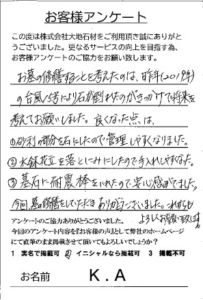 お客様アンケート
この度は株式会社大地石材をご利用頂き誠にありがと
うございました。更なるサービスの向上を目指す為、
お客様アンケートのご協力をお願い致します。
お墓の修繕をしようと考えたのは、昨年(2018年)
の台風
で石が割れたのがきっかけで将来を
考えてお願いしました。良くなった点は、
①砂利の部分を石にしたので管理しやすくなりました。
②水鉢、花立を
手入れしやすくなった。
③墓石に耐震棒を入れたので安心感がでました。
今回墓の修繕をしていただきありがとうございました。これからも
よろしくお願い致します。
アンケートにご協力ありがとうございました。
今回のアンケート内容をお客様の声として弊社のホームページ
にて直筆のまま掲載させて頂いてもよろしいでしょうか?
1 実名で掲載可 ② イニシャルなら掲載可 3 掲載不可
お名前 K.A